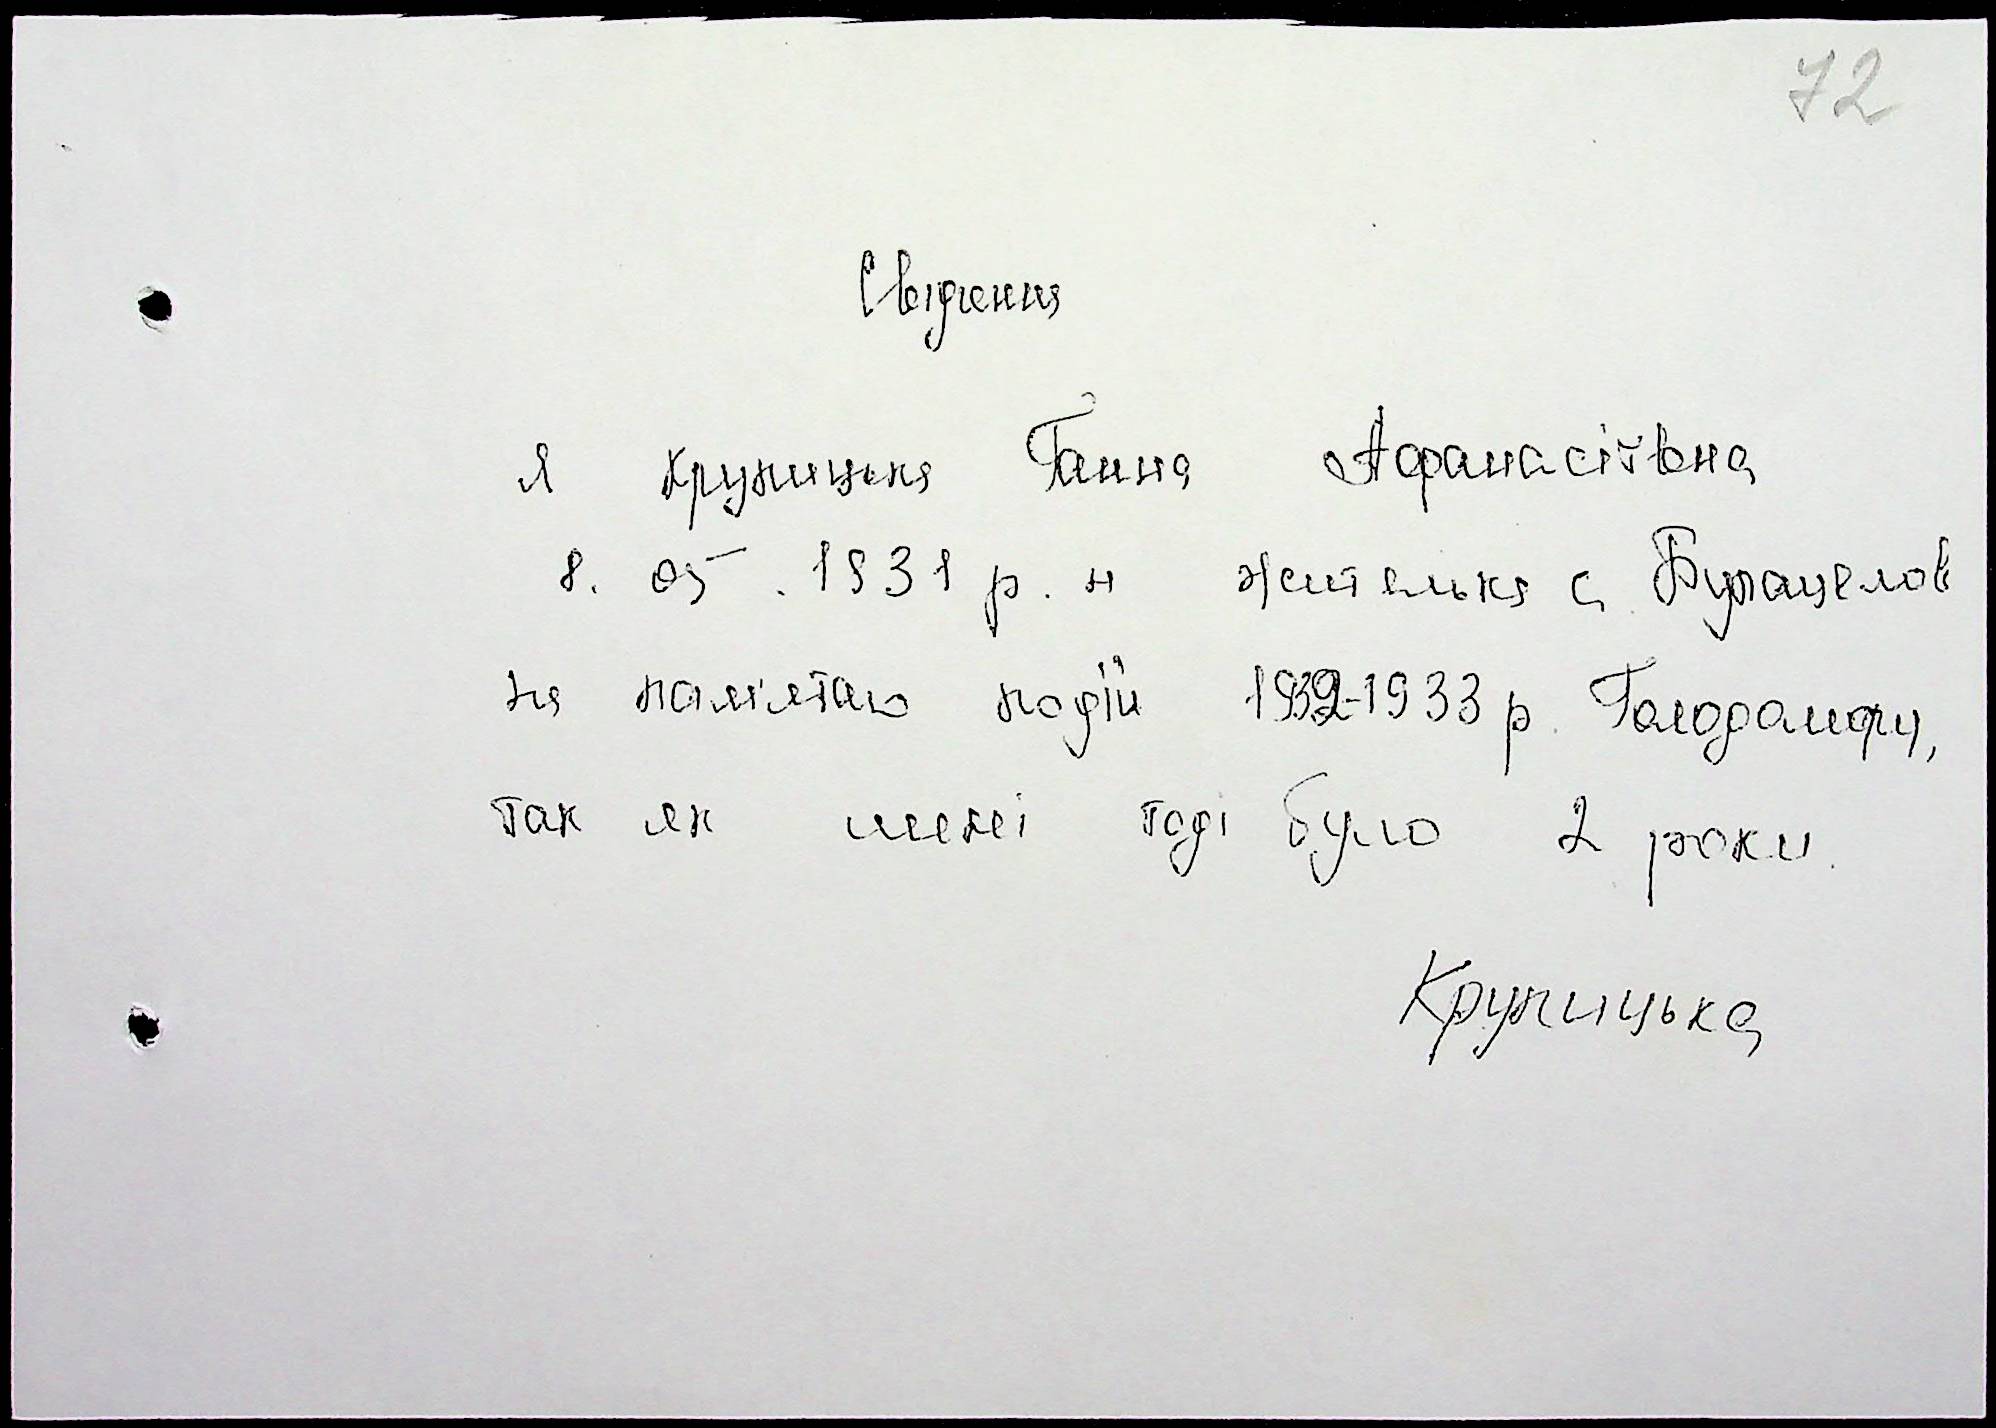 72
Свідчення
Я Крупицька Ганна Афанасіївна
8. 05. 1931 р. н жителька с.
не памiятаю подій 1932-1933 р. Голодомору,
так як мені тоді було 2 роки.
Крупицька